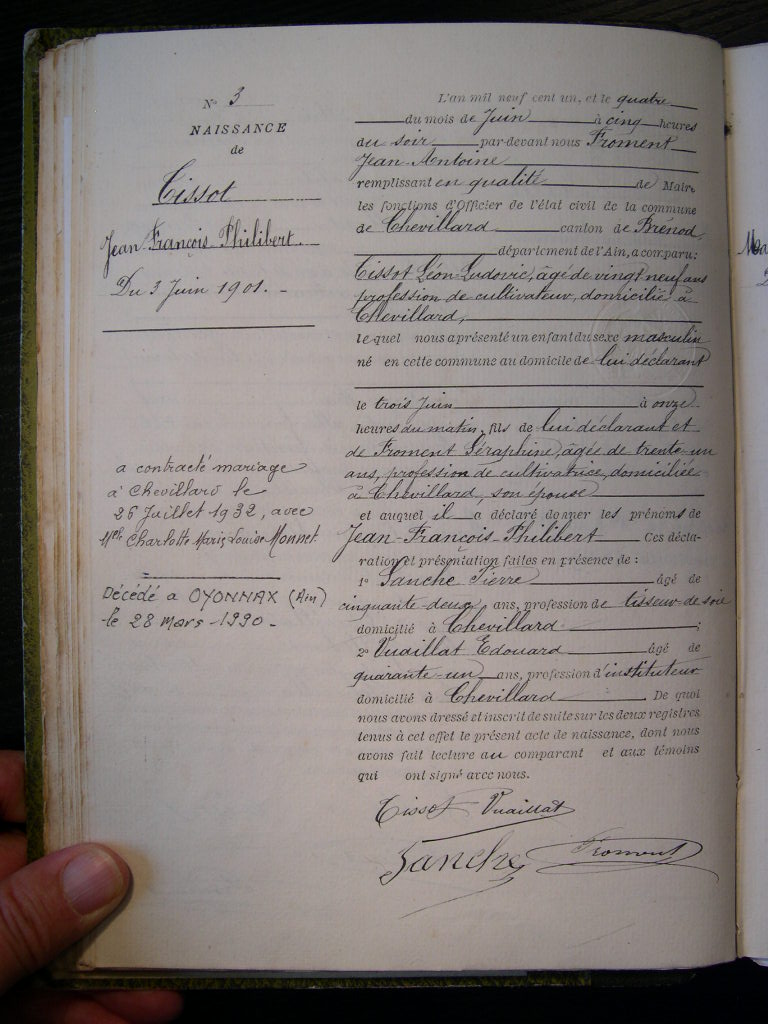 N° 3
NAISSANCE
de
Tissot
Jean-François-Philibert.
Du 3 Juin 1901. -
a contracté mariage
à Chevillard le
26 Juillet 1932, avec
Melle Charlotte Marie Louise Monnet
Décédé à OYONNAX (Ain)
le 28 mars 1990 -
L'an mil neuf cent un, et le quatre
du mois de Juin à cinq heures
du soir par-devant nous Froment
Jean-Antoine
remplissant en qualité de Maire
les fonctions d'Officier de l'état civil de la commune
de Chevillard canton de Brénod,
département de l'Ain, a comparu:
Tissot Léon-Ludovic, âgé de vingt neuf ans
profession de cultivateur, domicilié à
Chevillard,
lequel nous a présenté un enfant du sexe masculin
né en cette commune au domicile de lui déclarant
le trois Juin à onze
heures du matin, fils de lui déclarant et
de Froment Séraphine, âgée de trente-un
ans, profession de cultivatrice, domiciliée
à Chevillard, son épouse
et auquel il a déclaré donner les prénoms de
Jean-François-Philibert Ces décla-
ration et présentation faites en présence de :
1° Sanche Pierre âgé de
cinquante-deux ans, profession de tisseur de soie
domicilié à Chevillard ;
2° Vuaillat Edouard âgé de
quarante-un ans, profession d'instituteur
domicilié à Chevillard. De quoi
nous avons dressé et inscrit de suite sur les deux registres
tenus à cet effet le présent acte de naissance, dont nous
avons fait lecture au comparant et aux témoins
qui ont signé avec nous.
Tissot Vuaillat
Sanche Froment